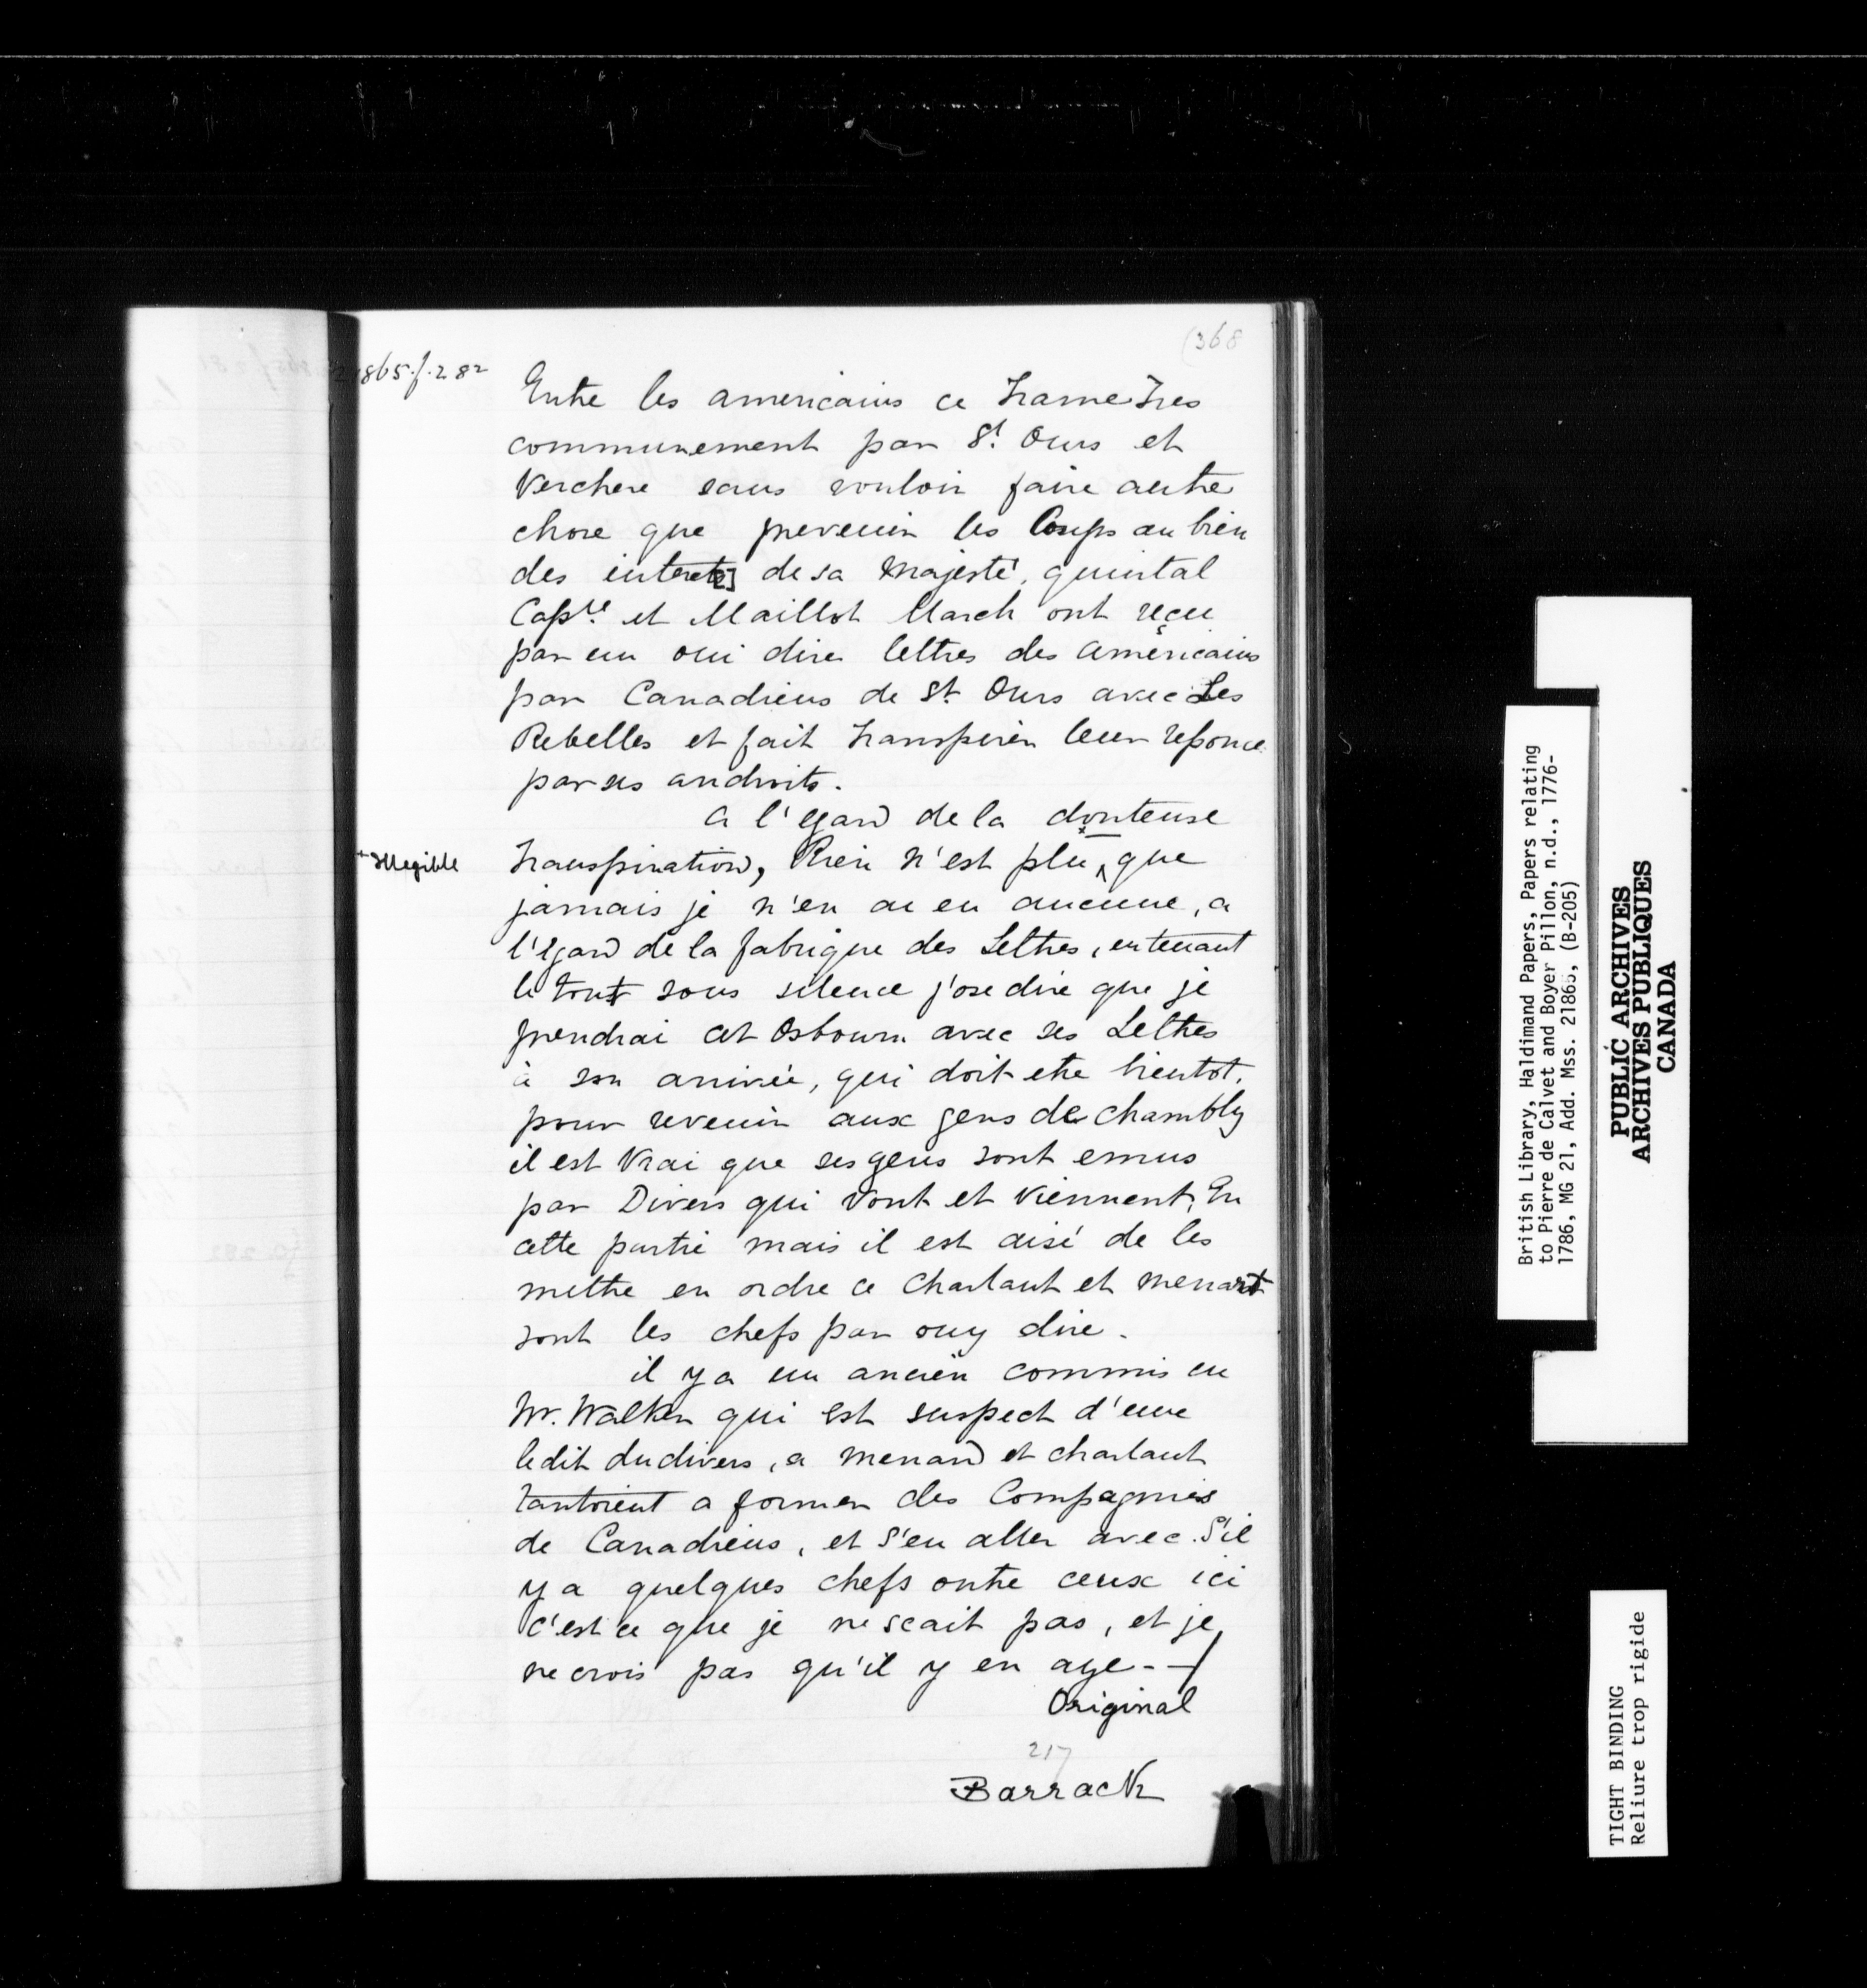 (368
21865.f.282
Entre les americains ce Trame Tres
communement par St. Ours et
Verchere sans vouloir faire autre
chose que prevenir les Coups au bien
des interets] de sa Majesté, quintal
Capne. et Maillot March ont reçu
par un oui dire lettres des américains
par Canadiens de St. Ours avec Les
Rebelles et fait Transpirer leur reponce
par ses androits.
a l'egard de la douteuse
+ Illegible
Transpiration, Rien n'est plu ^ que
jamais je n'en ai eu aucune, a
l'Egard de la fabrique des Lettres, en tenant
le tout sous silence j'ose dire que je
prendrai cet Osbourn avec ses Lettres
à son arrivée, qui doit etre bientot.
pour revenir aux gens de chambly
il est Vrai que ses gens sont emus
par Divers qui Vont et Viennent, En
cette partie mais il est aisé de les
mettre en ordre ce Charlaut et menart
sont les chefs par ouy dire.
il y a un ancien commis en
Mr. Walker qui est suspect d'eure
ledit du divers, a menard et charlaut
tantoient a former des Compagnies
de Canadiens, et S'en aller avec. S'il
y a quelques chefs ontre ceux ici
C'est ce que je ne scait pas, et je
ne crois pas qu'il y en aye. -
Original
217
Barrack
British Library, Haldimand Papers, Papers relating
to Pierre de Calvet and Boyer Pillon, n.d., 1776-
1786, MG 21, Add. Mss. 21865, (B-205)
PUBLIC ARCHIVES
ARCHIVES PUBLIQUES
CANADA
TIGHT BINDING
Reliure trop rigide